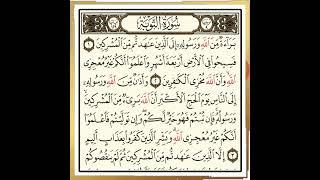 سُورَةُ التَّوْبَةِ
بَرَآءَةٌ مِّنَ ٱللَّهِ وَرَسُولِهِۦٓ إِلَى ٱلَّذِينَ عَٰهَدتُّم مِّنَ ٱلْمُشْرِكِينَ ١
فَسِيحُوا۟ فِى ٱلْأَرْضِ أَرْبَعَةَ أَشْهُرٍ وَٱعْلَمُوٓا۟ أَنَّكُمْ غَيْرُ مُعْجِزِى
ٱللَّهِ وَأَنَّ ٱللَّهَ مُخْزِى ٱلْكَٰفِرِينَ ٢ وَأَذَٰنٌ مِّنَ ٱللَّهِ وَرَسُولِهِۦٓ
إِلَى ٱلنَّاسِ يَوْمَ ٱلْحَجِّ ٱلْأَكْبَرِ أَنَّ ٱللَّهَ بَرِىٓءٌ مِّنَ ٱلْمُشْرِكِينَ
وَرَسُولُهُۥ فَإِن تُبْتُمْ فَهُوَ خَيْرٌ لَّكُمْ وَإِن تَوَلَّيْتُمْ فَٱعْلَمُوٓا۟
أَنَّكُمْ غَيْرُ مُعْجِزِى ٱللَّهِ وَبَشِّرِ ٱلَّذِينَ كَفَرُوا۟ بِعَذَابٍ أَلِيمٍ ٣
إِلَّا ٱلَّذِينَ عَٰهَدتُّم مِّنَ ٱلْمُشْرِكِينَ ثُمَّ لَمْ يَنقُصُوكُمْ